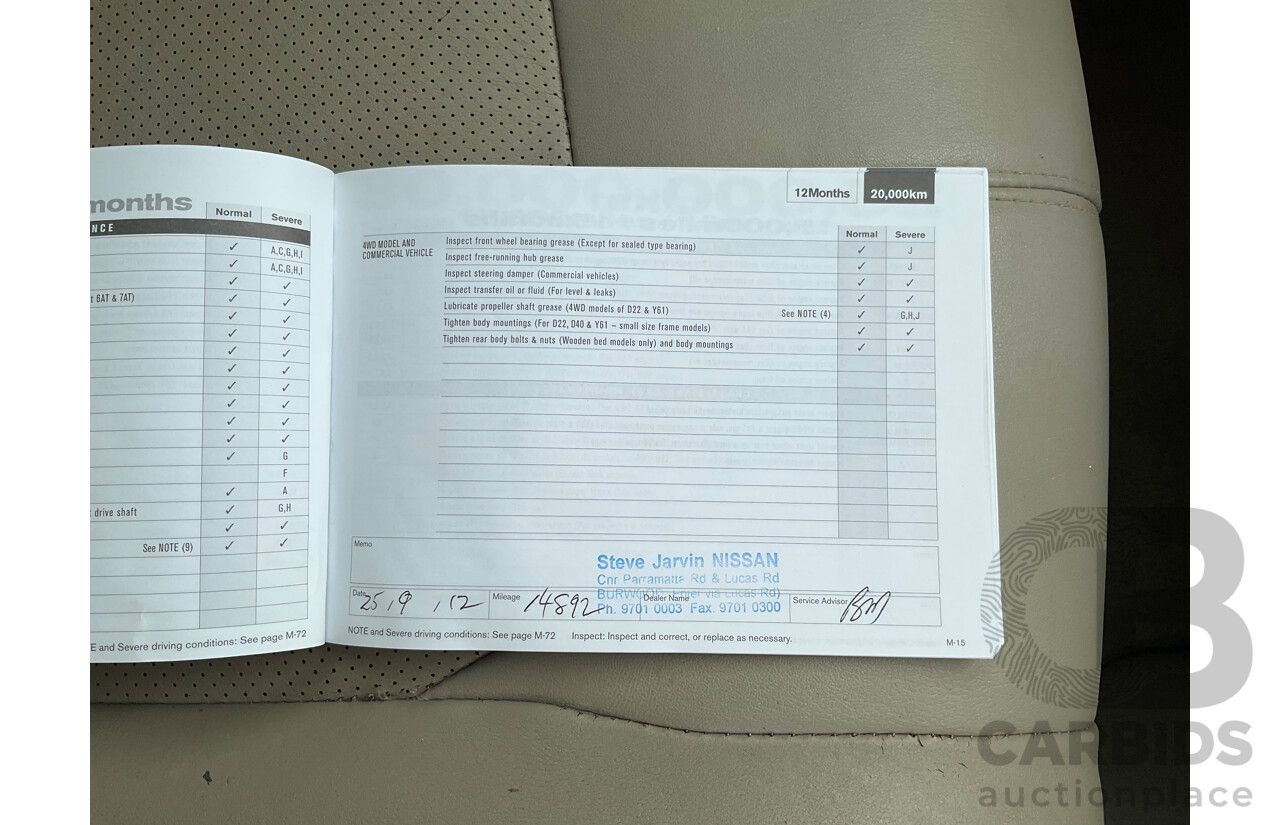 months
Normal Severe
NCE
✓ A,C,G,H,I
✓ A,C,G,H,I
✓ ✓
t 6AT & 7AT) ✓ ✓
✓ ✓
✓ ✓
✓ ✓
✓ ✓
✓ ✓
✓ ✓
✓ ✓
✓ ✓
✓ G
F
✓ A
drive shaft ✓ G,H
✓ ✓
See NOTE (9) ✓ ✓
E and Severe driving conditions: See page M-72
12Months 20,000km
Normal Severe
4WD MODEL AND
COMMERCIAL VEHICLE
Inspect front wheel bearing grease (Except for sealed type bearing) ✓ J
Inspect free-running hub grease ✓ J
Inspect steering damper (Commercial vehicles) ✓ ✓
Inspect transfer oil or fluid (For level & leaks) ✓ ✓
Lubricate propeller shaft grease (4WD models of D22 & Y61) See NOTE (4) ✓ G,H,J
Tighten body mountings (For D22, D40 & Y61 – small size frame models) ✓ ✓
Tighten rear body bolts & nuts (Wooden bed models only) and body mountings ✓ ✓
Memo
Steve Jarvin NISSAN
Cnr Parramatta Rd & Lucas Rd
BURWOOD Enter via Lucas Rd)
Ph. 9701 0003 Fax. 9701 0300
Date 25,9,12 Mileage 14892 Dealer Name Service Advisor
NOTE and Severe driving conditions: See page M-72 Inspect: Inspect and correct, or replace as necessary.
M-15
CB
CARBIDS
auctionplace